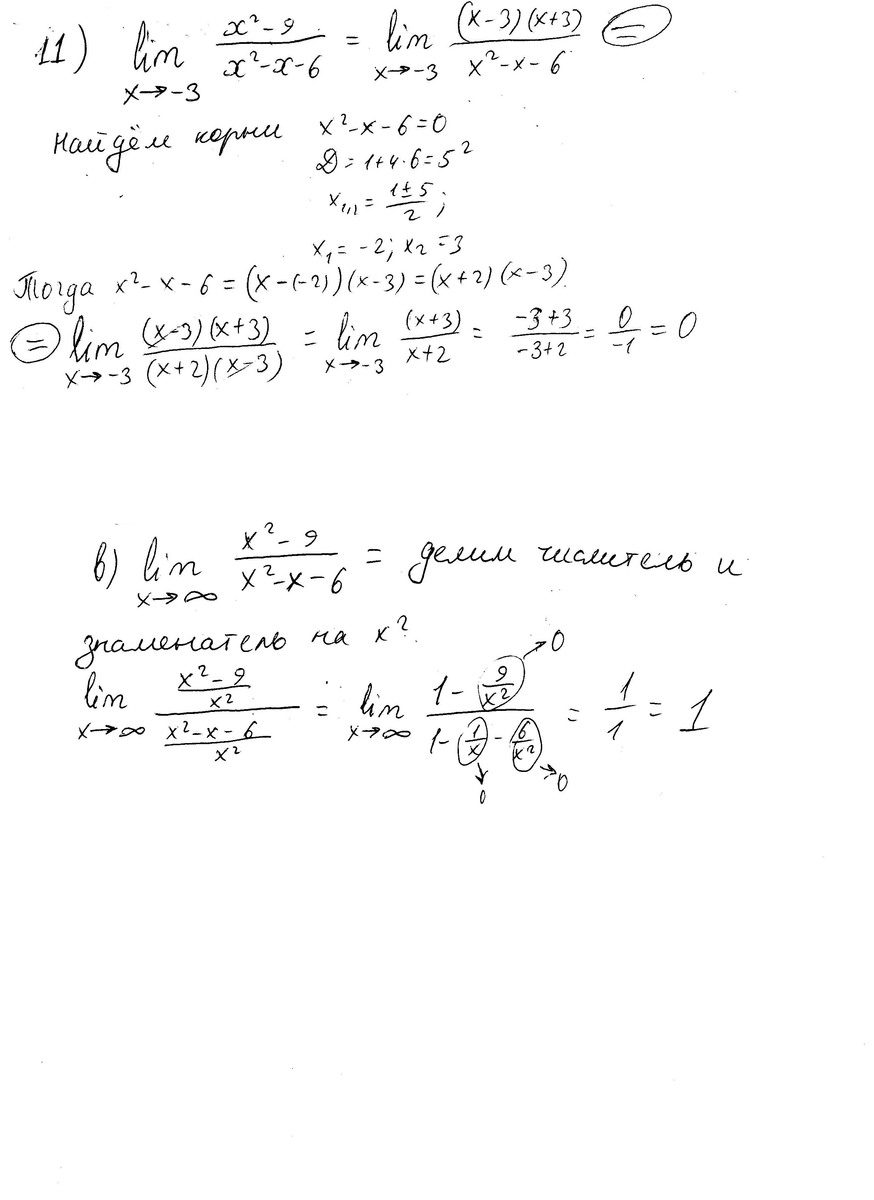 11) lim x→-3 (x²-9)/(x²-x-6) = lim x→-3 ((x-3)(x+3))/(x²-x-6) =
Найдём корни x²-x-6=0
D=1+4·6=5²
x₁,₂ = (1±5)/2;
x₁=-2; x₂=3
Тогда x²-x-6=(x-(-2))(x-3)=(x+2)(x-3)
= lim x→-3 ((x-3)(x+3))/((x+2)(x-3)) = lim x→-3 (x+3)/(x+2) = (-3+3)/(-3+2) = 0/-1 = 0
в) lim x→∞ (x²-9)/(x²-x-6) = делим числитель и
знаменатель на x².
lim x→∞ ((x²-9)/x²)/((x²-x-6)/x²) = lim x→∞ (1-9/x²)/(1-1/x-6/x²) = 1/1 = 1
→0
→0 →0